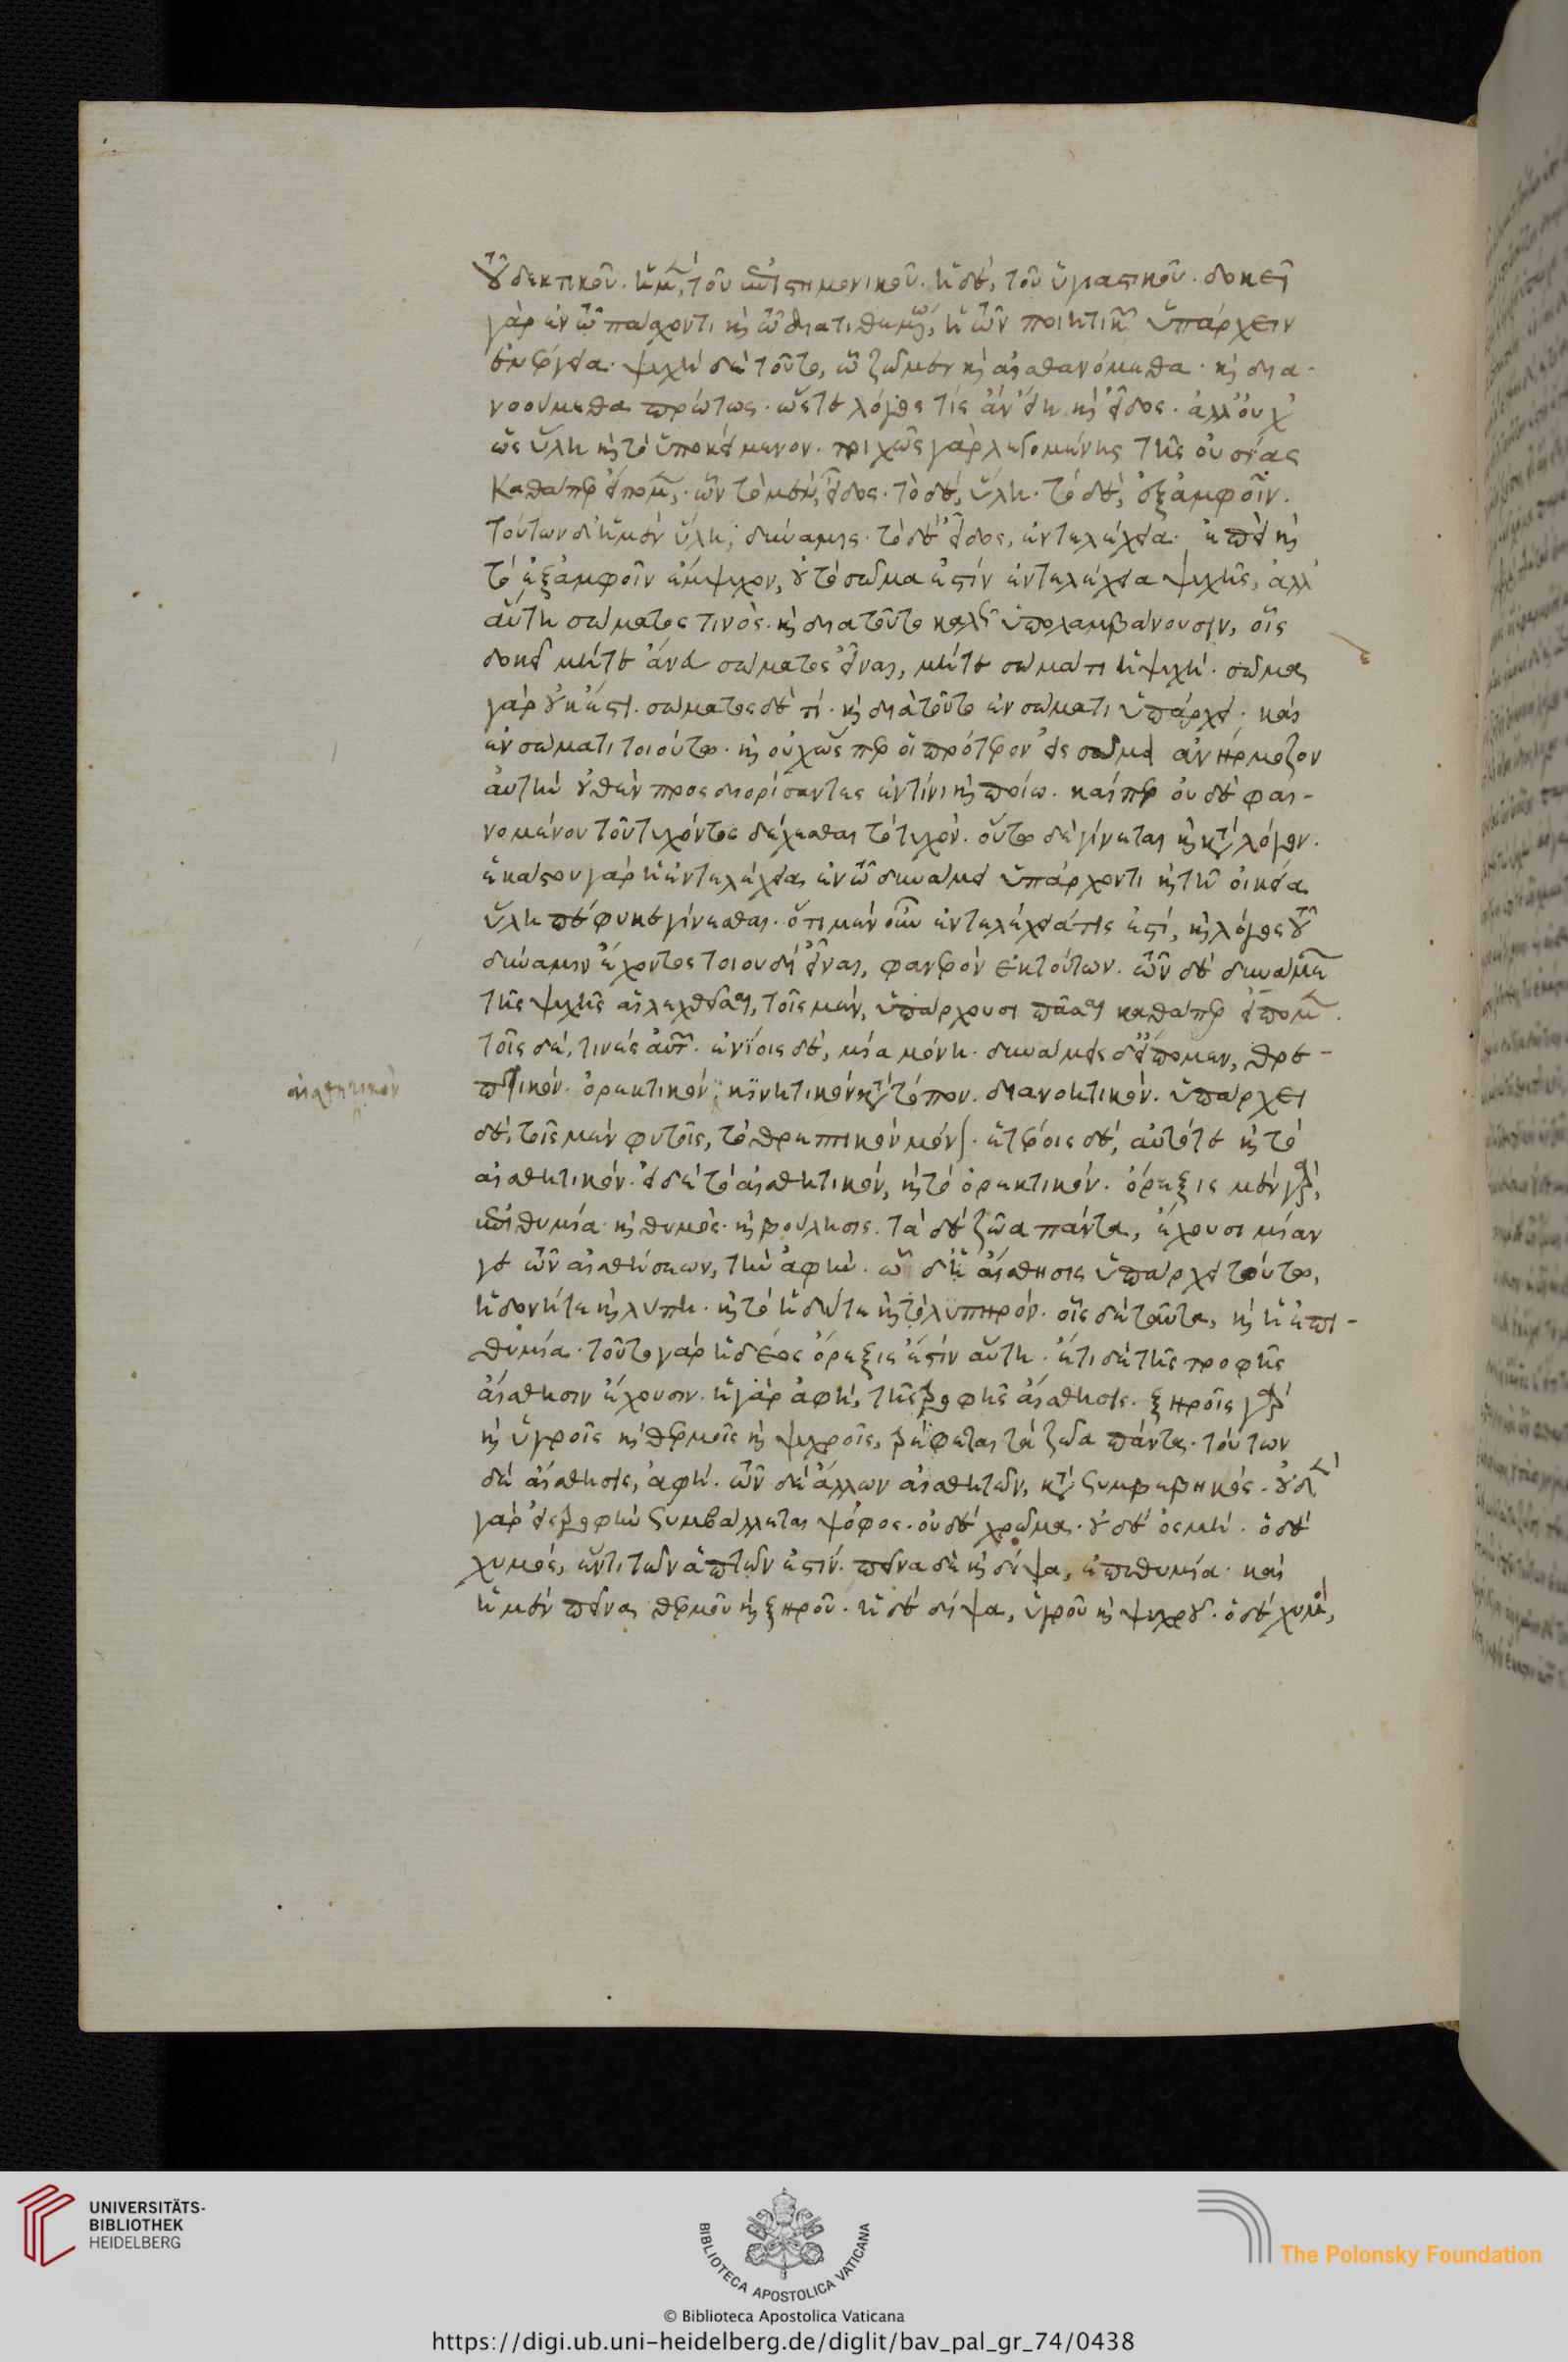 τοῦ δεκτικοῦ. ἡ μὲν, τοῦ ἐπιστημονικοῦ. ἡ δὲ, τοῦ ὑγιαστικοῦ. δοκεῖ
γὰρ ἐν τῷ πάσχοντι καὶ τῷ διατιθεμένῳ, ἡ τῶν ποιητικῶν ὑπάρχειν
ἐνέργεια. ψυχὴ δὲ τοῦτο, ᾧ ζῶμεν καὶ αἰσθανόμεθα. καὶ δια-
νοούμεθα πρώτως. ὥστε λόγος τίς ἂν εἴη καὶ εἶδος. ἀλλ' οὐχ
ὡς ὕλη καὶ τὸ ὑποκείμενον. τριχῶς γὰρ λεγομένης τῆς οὐσίας
καθάπερ εἴπομεν, ὧν τὸ μὲν, εἶδος. τὸ δὲ, ὕλη. τὸ δὲ, ἐξ ἀμφοῖν.
τούτων δ' ἡ μὲν ὕλη, δύναμις. τὸ δὲ εἶδος, ἐντελέχεια. ἐπεὶ καὶ
τὸ ἐξ ἀμφοῖν ἔμψυχον, οὐ τὸ σῶμα ἐστὶν ἐντελέχεια ψυχῆς, ἀλλ'
αὕτη σώματος τινὸς. καὶ διατοῦτο καλῶς ὑπολαμβάνουσιν, οἷς
δοκεῖ μήτε ἄνευ σώματος εἶναι, μήτε σῶμά τι ἡ ψυχή. σῶμα
γὰρ οὐκ ἔστι. σώματος δέ τι. καὶ διὰ τοῦτο ἐν σώματι ὑπάρχει. καὶ
ἐν σώματι τοιούτῳ. καὶ οὐχ ὥσπερ οἱ πρότερον εἰς σῶμα ἐνήρμοζον
αὐτὴν οὐθὲν προσδιορίσαντες ἐν τίνι καὶ ποίῳ. καίπερ οὐδὲ φαι-
νομένου τοῦ τυχόντος δέχεσθαι τὸ τυχόν. οὕτω δὲ γίνεται καὶ κατὰ λόγον.
ἑκάστου γὰρ ἡ ἐντελέχεια ἐν τῷ δυνάμει ὑπάρχοντι καὶ τῇ οἰκεία
ὕλη πέφυκε γίνεσθαι. ὅτι μὲν οὖν ἐντελέχειά τις ἐστί, καὶ λόγος τοῦ
δύναμιν ἔχοντος τοιουδὶ εἶναι, φανερὸν ἐκ τούτων. τῶν δὲ δυνάμεων
τῆς ψυχῆς αἱ λεχθεῖσαι, τοῖς μὲν, ὑπάρχουσι πᾶσαι καθάπερ εἴπομεν.
τοῖς δέ, τινὲς αὐτῶν. ἐνίοις δὲ, μία μόνη. δυνάμεις δ' εἴπομεν, θρε-
πτικόν. ὀρεκτικόν. κινητικὸν κατὰ τόπον. διανοητικόν. ὑπάρχει
αἰσθητικὸν
δὲ, τοῖς μὲν φυτοῖς, τὸ θρεπτικὸν μόνον. ἑτέροις δὲ, αὐτό τε καὶ τὸ
αἰσθητικόν. εἰ δὲ τὸ αἰσθητικόν, καὶ τὸ ὀρεκτικόν. ὄρεξις μὲν γὰρ,
ἐπιθυμία. καὶ θυμὸς. καὶ βούλησις. τὰ δὲ ζῷα πάντα, ἔχουσι μίαν
γε τῶν αἰσθήσεων, τὴν ἁφήν. ᾧ δ' ἡ αἴσθησις ὑπάρχει τούτω,
ἡδονή τε καὶ λύπη. καὶ τὸ ἡδύ τε καὶ τὸ λυπηρόν. οἷς δὲ ταῦτα, καὶ ἡ ἐπι-
θυμία. τοῦτο γὰρ ἡδέος ὄρεξις ἐστὶν αὕτη. ἔτι δὲ τῆς τροφῆς
αἴσθησιν ἔχουσιν. ἡ γὰρ ἁφή, τῆς τροφῆς αἴσθησις. ξηροῖς γὰρ
καὶ ὑγροῖς καὶ θερμοῖς καὶ ψυχροῖς, τρέφεται τὰ ζῶα πάντα. τούτων
δὲ αἴσθησις, ἁφή. τῶν δὲ ἄλλων αἰσθητῶν, κατὰ συμβεβηκός. οὐδὲν
γὰρ εἰς τροφὴν συμβάλλεται ψόφος. οὐδὲ χρῶμα. οὐδὲ ὀσμή. ὁ δὲ
χυμός, ἕν τι τῶν ἁπτῶν ἐστίν. πεῖνα δὲ καὶ δίψα, ἐπιθυμία. καὶ
ἡ μὲν πεῖνα θερμοῦ καὶ ξηροῦ. ἡ δὲ δίψα, ὑγροῦ καὶ ψυχροῦ. ὁ δὲ χυμὸς,
UNIVERSITÄTS-
BIBLIOTHEK
HEIDELBERG
BIBLIOTECA APOSTOLICA VATICANA
The Polonsky Foundation
© Biblioteca Apostolica Vaticana
https://digi.ub.uni-heidelberg.de/diglit/bav_pal_gr_74/0438